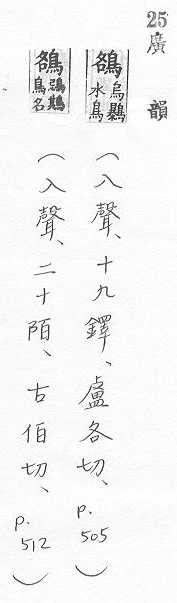 25 廣韻
鵅 烏鸔水鳥 (入聲、十九鐸、盧各切、p.505)
鵅 鳥名 (入聲、二十陌、古伯切、p.512)